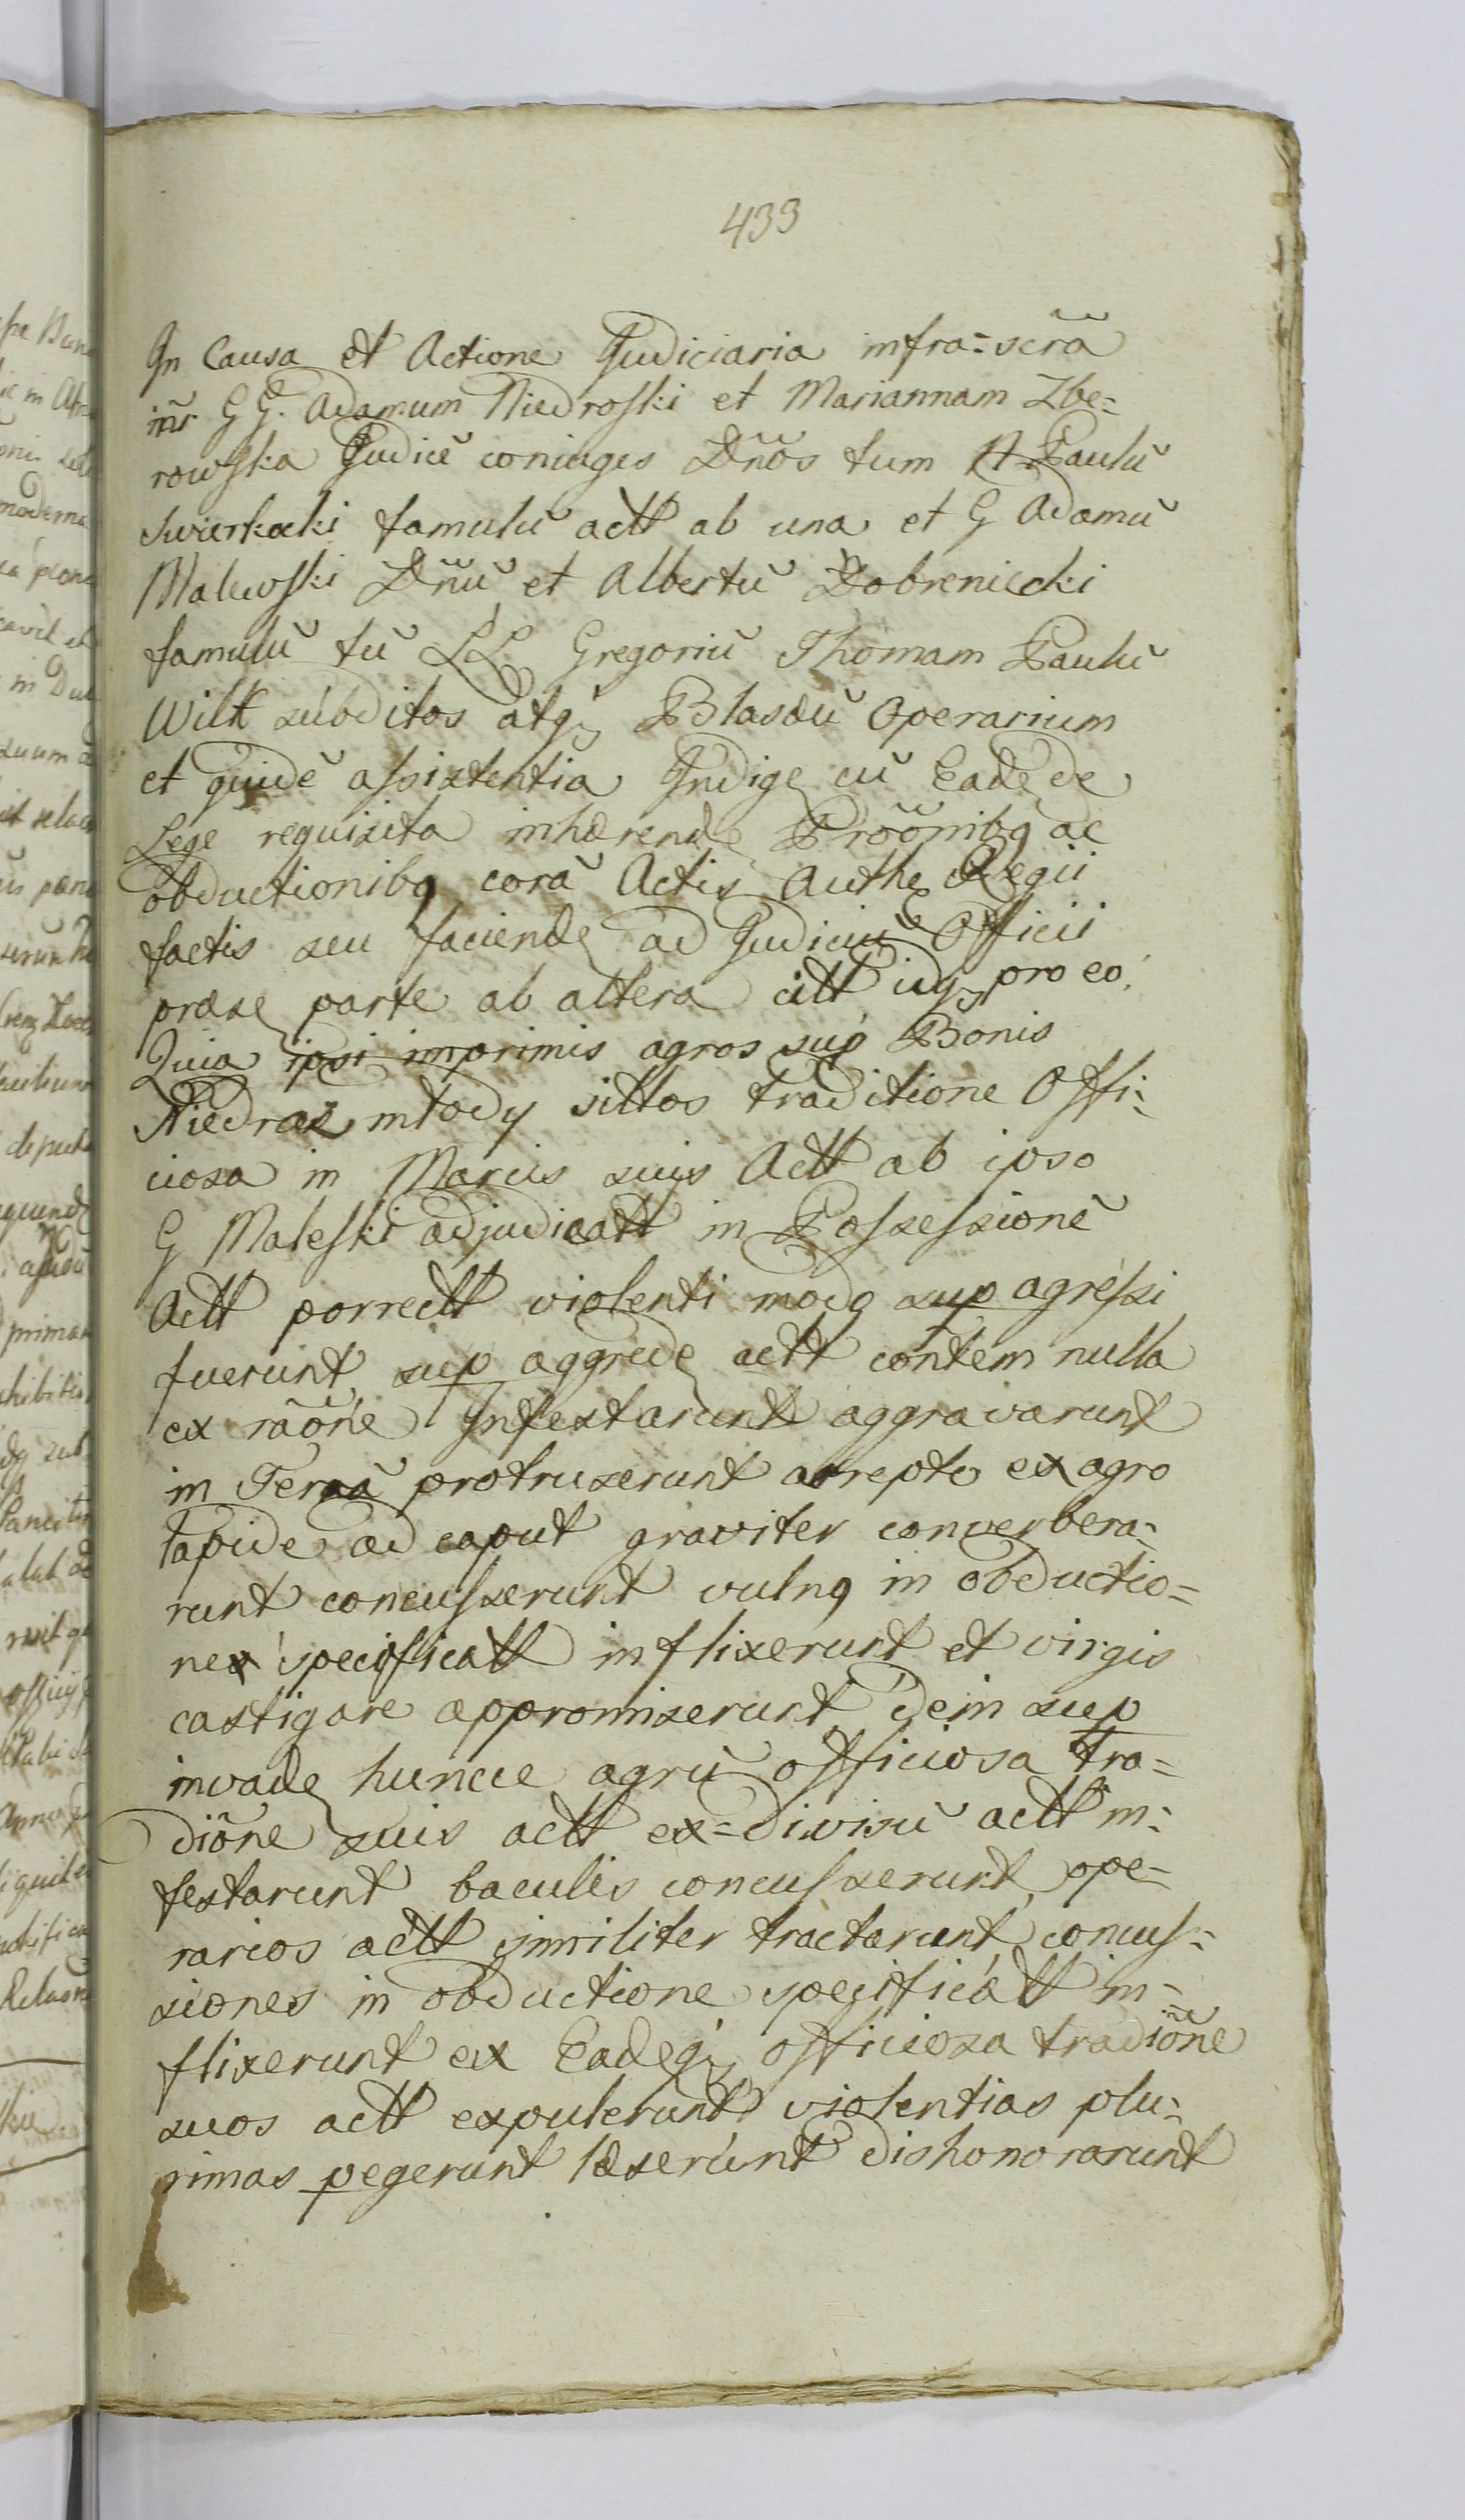 433
In Causa et Actione Judiciaria infra=scrã
inr̃ G G. Adamum Niedroski et Mariannam Zbe=
rowska Judice coniuges Dños tum N Paulũ
Swierkocki famulũ actt ab una et G Adamũ
Malewski Dñũ et Albertũ Dobreniecki
famulũ tũ LL Gregoriũ Thomam Paulũ
Wilk subditos atq; Blasaũ Operarium
et quidẽ assistentia Indige cũ Eade de
Lege requisita inhærende Proõnibq ac
obductionibq corã Actis Authe Regii
factis seu faciende ad Judiciũ Officii
præse parte ab altera citt idq; pro eo.
Quia ipsi imprimis agros sup Bonis
Niedraz młody sittos traditione Offi=
ciosa in Marcis suis Actt ab ipso
G Maleski adjudicatt in Possessionẽ
Actt porrectt violenti modo sup agressi
fuerunt sup aggrede actt contem nulla
ex raõne Infestarunt aggravarunt
in Terrã protruserunt arrepto ex agro
lapide ad caput graviter converbera=
runt concusserunt vulnq in obductio=
nex specificatt inflixerunt et virgis
castigare appromiserunt dein sup
invade huncce agrũ officiosa tra=
diõne suis actt ex=divisũ actt in=
festarunt baculis concusserunt ope=
rarios actt similiter tractarunt concus=
siones in obductione specificatt in=
flixerunt ex Eadeq; officiosa tradiõne
suos actt expulerunt violentias plu=
rimas pegerunt læserunt dishonorarunt